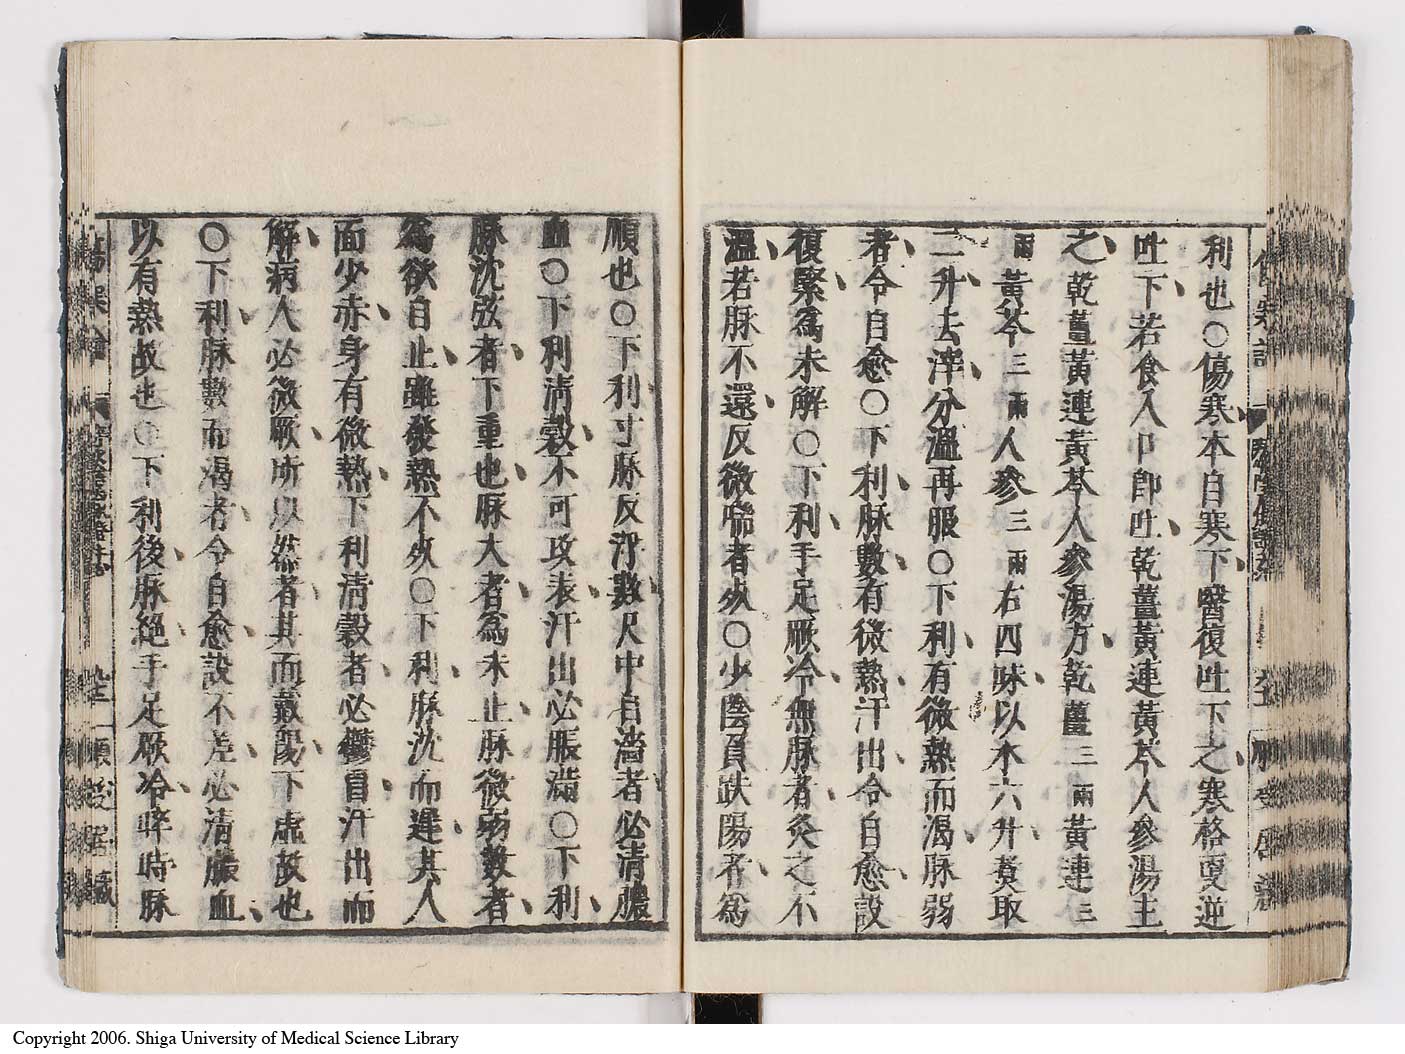 利也○傷寒本自寒下醫復吐下之寒格更逆
吐下若食入口即吐乾薑黃連黃芩人參湯主
之乾薑黃連黃芩人參湯方乾薑三兩黃連三
兩黃芩三兩人參三兩右四味以水六升煑取
二升去滓分溫再服○下利有微熱而渴脉弱
者令自愈○下利脉數有微熱汗出令自愈設
復緊爲未解○下利手足厥冷無脉者灸之不
溫若脉不還反微喘者死○少陰負趺陽者爲
順也○下利寸脉反浮數尺中自濇者必清膿
血○下利清穀不可攻表汗出必脹滿○下利
脉沈弦者下重也脉大者爲未止脉微弱數者
爲欲自止雖發熱不死○下利脉沈而遲其人
面少赤身有微熱下利清穀者必鬱冒汗出而
解病人必微厥所以然者其面戴陽下虛故也
○下利脉數而渴者令自愈設不差必清膿血
以有熱故也○下利後脉絕手足厥冷晬時脉
Copyright 2006. Shiga University of Medical Science Library